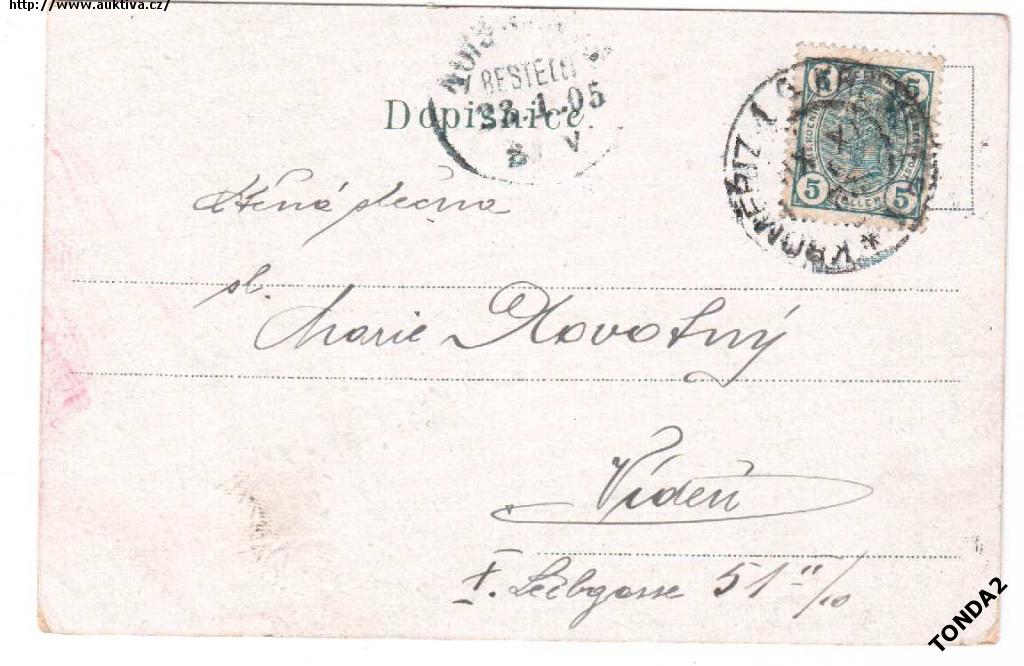 http://www.auktiva.cz/
BESTELLT
Dopisnice
23.1.05
V
5 5
5 5
HELLER
KROMĚŘÍŽ
Ctěná slečna
sl.
Marie Novotný
Vídeň
X. Leibgasse 51 II/10
TONDA2